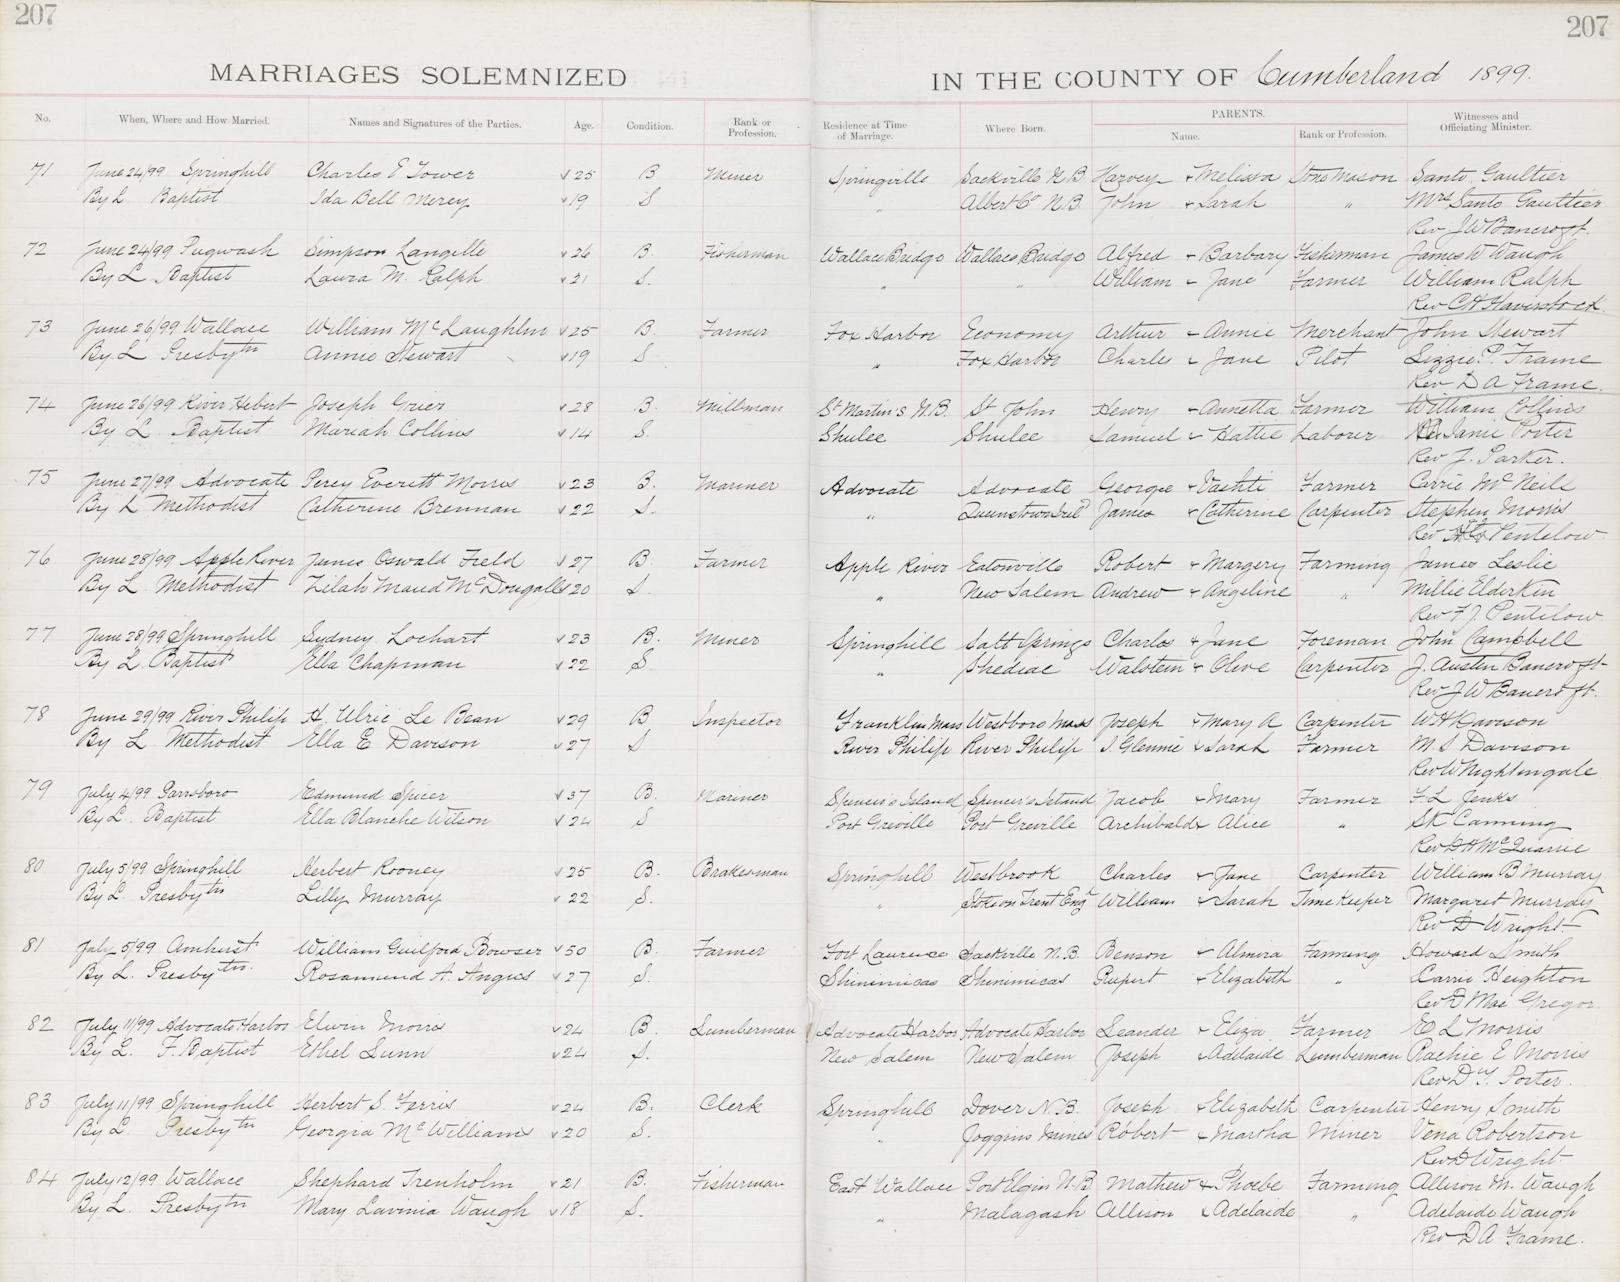 207 207
MARRIAGES SOLEMNIZED IN THE COUNTY OF Cumberland 1899.
No. When, Where and How Married. Names and Signatures of the Parties. Age. Condition. Rank or Profession. Residence at Time of Marriage. Where Born. PARENTS. Name. Rank or Profession. Witnesses and Officiating Minister.
71 June 24/99 Springhill Charles E Tower 25 B Miner Springville Sackville N.B Harvey + Melissa Stone Mason Santo Gaultier
By L Baptist Ida Bell Mercy 19 S " Albert Co N.B John + Sarah " Mrs Santo Gaultier
Rev J W Bancroft.
72 June 24/99 Pugwash Simpson Langille 26 B. Fisherman Wallace Bridge Wallace Bridge Alfred + Barbary Fisherman James W Waugh
By L. Baptist Laura M. Ralph 21 S. " " William + Jane Farmer William Ralph
Rev C H Haverstock
73 June 26/99 Wallace William McLaughlin 25 B. Farmer Fox Harbor Economy Arthur + Annie Merchant John Stewart
By L Presbytn Annie Stewart 19 S " Fox Harbor Charles + Jane Pilot Lizzie P. Frame
Rev D A Frame.
74 June 26/99 River Hebert Joseph Grier 28 B. Millman St Martins N.B. St John Henry + Annetta Farmer William Collins
By L Baptist Mariah Collins 14 S. Shulee Shulee Samuel + Hattie Laborer Janie Porter
Rev J. Parker.
75 June 27/99 Advocate Percy Everett Morris 23 B. Mariner Advocate Advocate George + Vashti Farmer Carrie McNeill
By L Methodist Catherine Brennan 22 S. " Queenstown Ireld James + Catherine Carpenter Stephen Morris
Rev Pentelow
76 June 28/99 Apple River James Oswald Field 27 B. Farmer Apple River Eatonville Robert + Margery Farming James Leslie
By L Methodist Zilah Maud McDougall 20 S. " New Salem Andrew + Angeline " Millie Elderkin
Rev F J. Pentelow
77 June 28/99 Springhill Sydney Lochart 23 B. Miner Springhill Salt Springs Charles + Jane Foreman John Campbell
By L. Baptist Ella Chapman 22 S. " Shediac Walstein + Olive Carpenter J. Austen Bancroft
Rev J W Bancroft.
78 June 29/99 River Philip H. Ulric Le Bean 29 B Inspector Franklin Mass Westboro Mass Joseph + Mary A Carpenter W H Davison
By L Methodist Ella E Davison 27 S River Philip River Philip J. Glennie + Sarah Farmer M. S Davison
Rev W Nightingale
79 July 4/99 Parrsboro Edmund Spicer 37 B. Mariner Spencer's Island Spencer's Island Jacob + Mary Farmer F. L Jenks
By L. Baptist Ella Blanche Wilson 24 S Port Greville Port Greville Archibald + Alice " S K Canning
Rev D H McQuarrie
80 July 5/99 Springhill Herbert Rooney 25 B. Brakesman Springhill Westbrook Charles + Jane Carpenter William B Murray
By L. Presbytn Lilly Murray 22 S. " Stoke on Trent Eng William + Sarah Time Keeper Margaret Murray
Rev D Wright
81 July 5/99 Amherst William Guilford Bowser 50 B. Farmer Fort Laurence Sackville N.B. Benson + Almira Farming Howard Smith
By L. Presbytn. Rosamund A. Angus 27 S. Shinimicas Shinimicas Rupert + Elizabeth " Carrie Heighton
Rev D Mac Gregor
82 July 11/99 Advocate Harbor Elwin Morris 24 B. Lumberman Advocate Harbor Advocate Harbor Leander + Eliza Farmer E L Morris
By L. F. Baptist Ethel Lunn 24 S. New Salem New Salem Joseph + Adelaide Lumberman Rachie E Morris
Rev D. Y. Porter.
83 July 11/99 Springhill Herbert S Ferris 24 B. Clerk Springhill Dover N.B. Joseph + Elizabeth Carpenter Henry Smith
By L Presbytn Georgia McWilliams 20 S. " Joggins Mines Robert + Martha Miner Vena Robertson
Rev D Wright
84 July 12/99 Wallace Shephard Trenholm 21 B. Fisherman East Wallace Port Elgin N.B Mathew + Phoebe Farming Allison M. Waugh
By L. Presbytn Mary Lavinia Waugh 18 S. " Malagash Allison + Adelaide " Adelaide Waugh
Rev D A Frame.